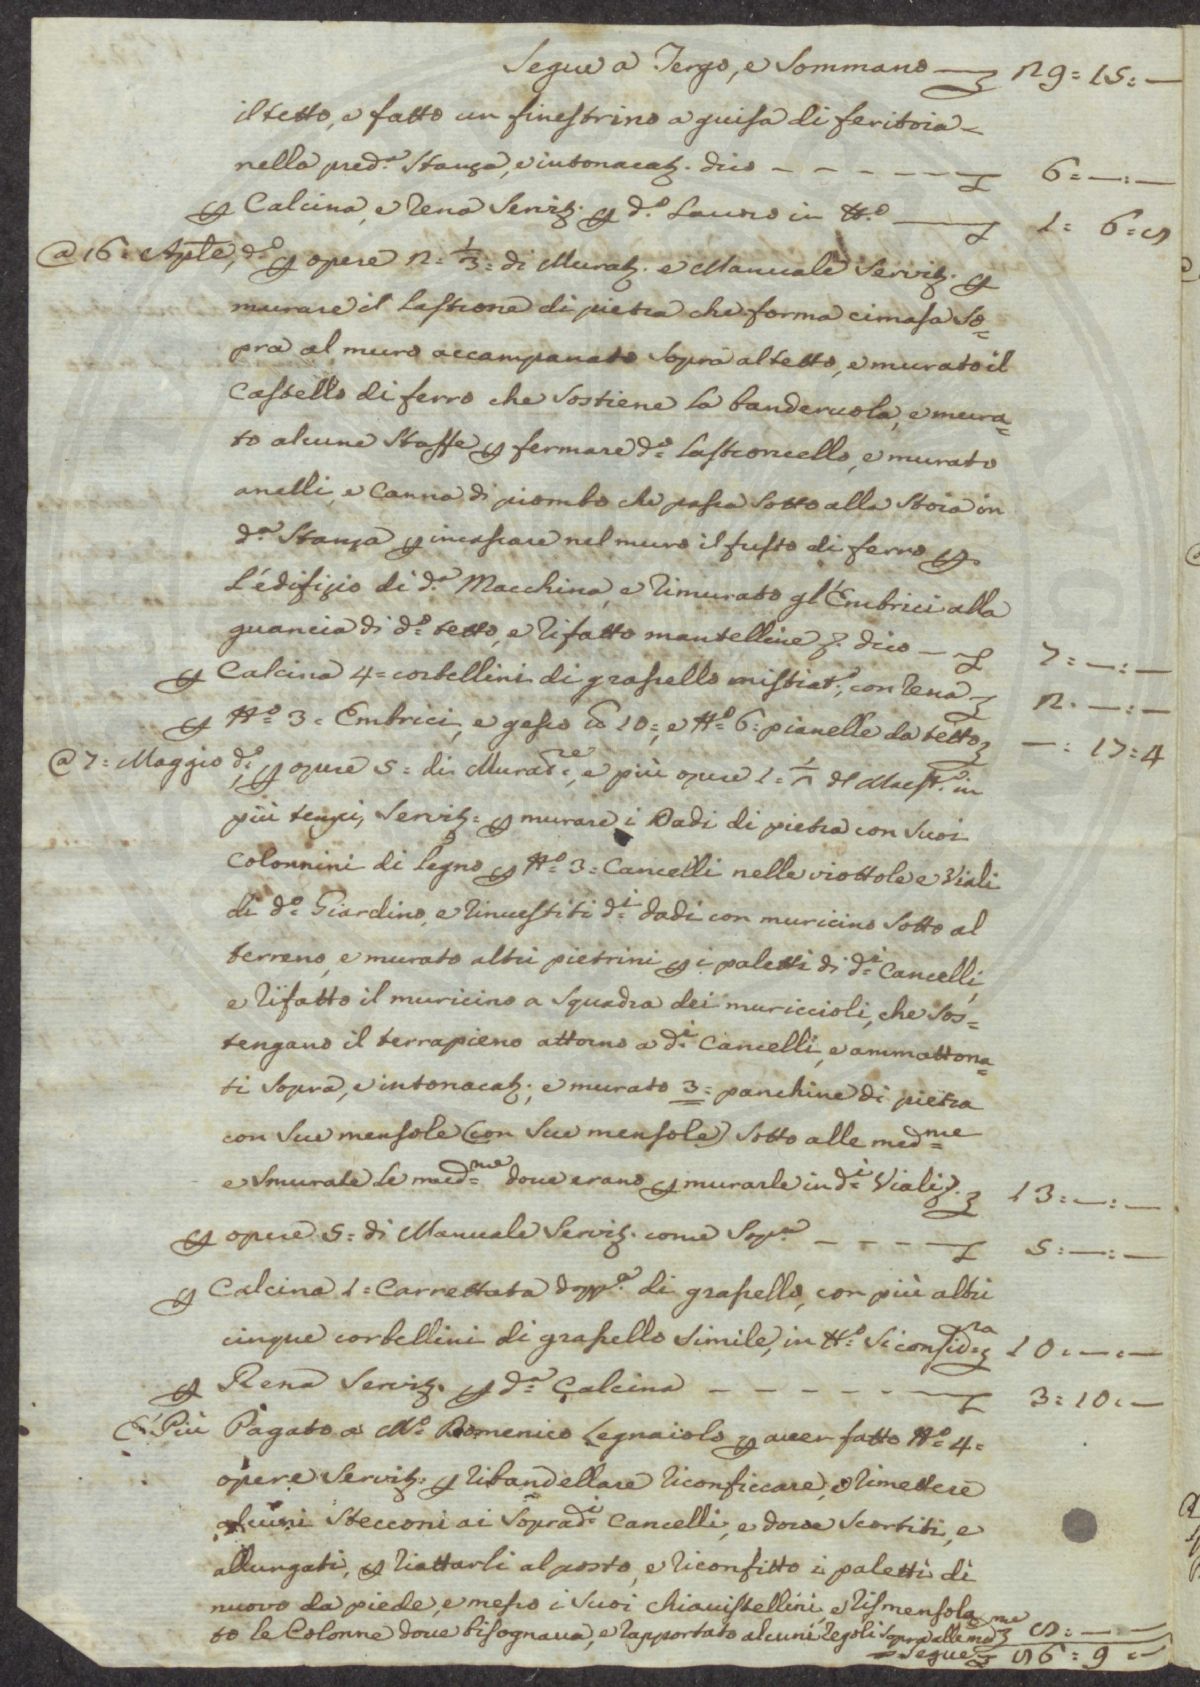 Segue a Tergo, e Sommano — 29 = 15 = —
il tetto, e fatto un finestrino a guisa di feritoia
nella pred.ª Stanza, e intonacatz. dico - - - - - 6 = — : —
ꝑ Calcina, e rena Servitz. ꝑ d.º Lauoro in tt.º — 1 = 6 = 8
@ 16 = Aple, d.º ꝑ opere 2 = 1/3 = di Muratz. e Manuale Servitz. ꝑ
murare il Lastrone di pietra che forma cimasa So=
pra al muro accampanato Sopra al tetto, e murato il
Castello di ferro che Sostiene la banderuola, e mura=
to alcune Staffe ꝑ fermare d.º Lastroncello, e murato
anelli, e Canna di piombo che passa Sotto alla Stoia in
d.ª Stanza ꝑ incassare nel muro il fusto di ferro ꝑ
L'edifizio di d.ª Macchina, e rimurato gl'Embrici alla
guancia di d.º tetto, e rifatto mantelline z. dico — 7 = — : —
ꝑ Calcina 4 = corbellini di grassello mistiat.º, con rena 2 . — : —
ꝑ N.º 3 = Embrici, e gesso 10 =, e N.º 6 = pianelle da tetto — : 17 = 4
@ 7 = Maggio d.º, ꝑ opere 5 = di Murat.re, e più opere 1 = 1/2 del Maest.º in
più tempi, Servitz. ꝑ murare i Dadi di pietra con Suoi
Colonnini di legno ꝑ N.º 3 = Cancelli nelle viottole e Viali
di d.º Giardino, e rinuestiti d.i dadi con muricino Sotto al
terreno, e murato altri pietrini ꝑ i paletti di d.i Cancelli,
e rifatto il muricino a Squadra dei muriccioli, che Sos=
tengano il terrapieno attorno a d.i Cancelli, e ammattona=
ti Sopra, e intonacatz., e murato 3 = panchine di pietra
con Sue mensole (con Sue mensole) Sotto alle med.me
e Smurate le med.me doue erano ꝑ murarle in d.i Viali z. 13 = — : —
ꝑ opere 5 = di Manuale Servitz. come Sop.ª - - - - 5 = — : —
ꝑ Calcina 1 = Carrettata dopp.ª di grassello, con più altri
cinque corbellini di grassello Simile, in tt.º Si consid.ra 10 . — . —
ꝑ Rena Servitz. ꝑ d.ª Calcina - - - - - - 3 = 10 . —
E' Più Pagato a M.º Domenico Legnaiolo ꝑ auer fatto N.º 4 =
opere Servitz. ꝑ ribandellare riconficcare, e rimettere
alcuni Stecconi ai Soprad.i Cancelli, e doue Scortiti, e
allungati, ꝑ riattarli al posto, e riconfitto i paletti di
nuovo da piede, e messo i Suoi chiauistellini, e rismensola
to le Colonne doue bisognaua, e rapportato alcuni regoli Sopra alle med.me 8 = — —
= Segue 86 = 9 = —